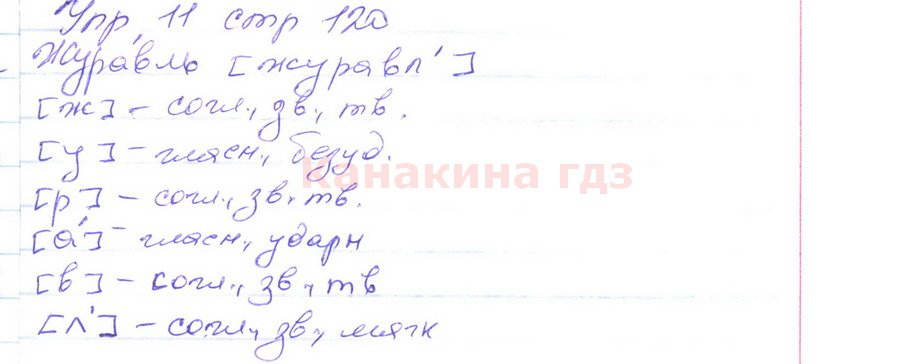 Упр, 11 стр 120
Жура́вль [журавл']
[ж] - согл., зв., тв.
[у] - гласн, безуд.
Канакина гдз
[р] - согл., зв. тв.
[а́] - гласн, ударн
[в] - согл., зв., тв
[л'] - согл, зв., мягк